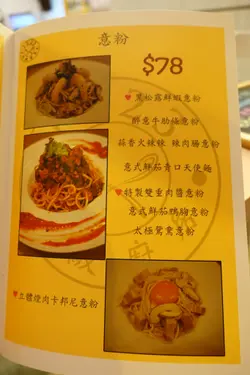 意粉
$78
黑松露鮮蝦意粉
醉意牛肋條意粉
蒜香火辣辣 辣肉腸意粉
意式鮮茄青口天使麵
特製雙重肉醬意粉
意式鮮茄鴨胸意粉
太極鴛鴦意粉
土豪燒肉卡邦尼意粉